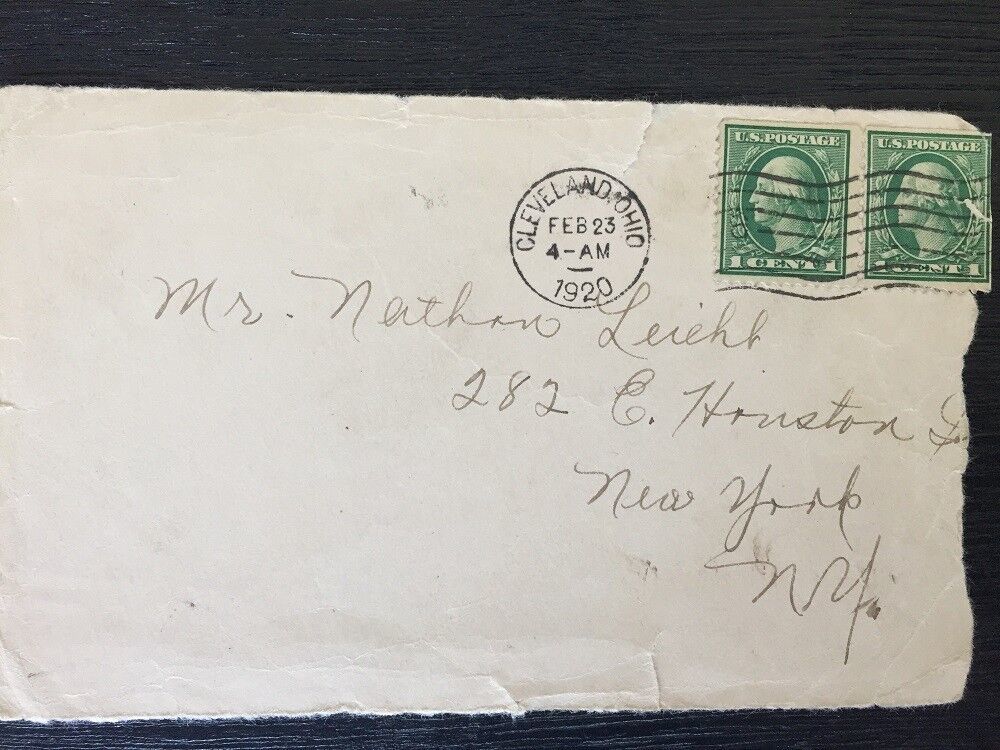 U.S. POSTAGE U.S. POSTAGE
1 CENT 1 1 CENTS 1
CLEVELAND, OHIO
FEB 23
4-AM
1920
Mr. Nathan Leiehl
282 E. Houston
New York
N.Y.